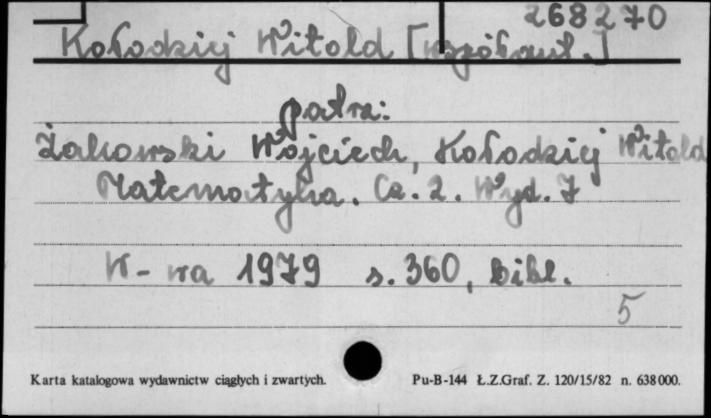 268270
Kołodziej Witold [współaut.]
patrz:
Żakowski Wojciech, Kołodziej Witold
Matematyka. Cz. 2. Wyd. 7
W-wa 1979 s. 360, bibl.
5
Karta katalogowa wydawnictw ciągłych i zwartych. Pu-B-144 Ł.Z.Graf. Z. 120/15/82 n. 638000.